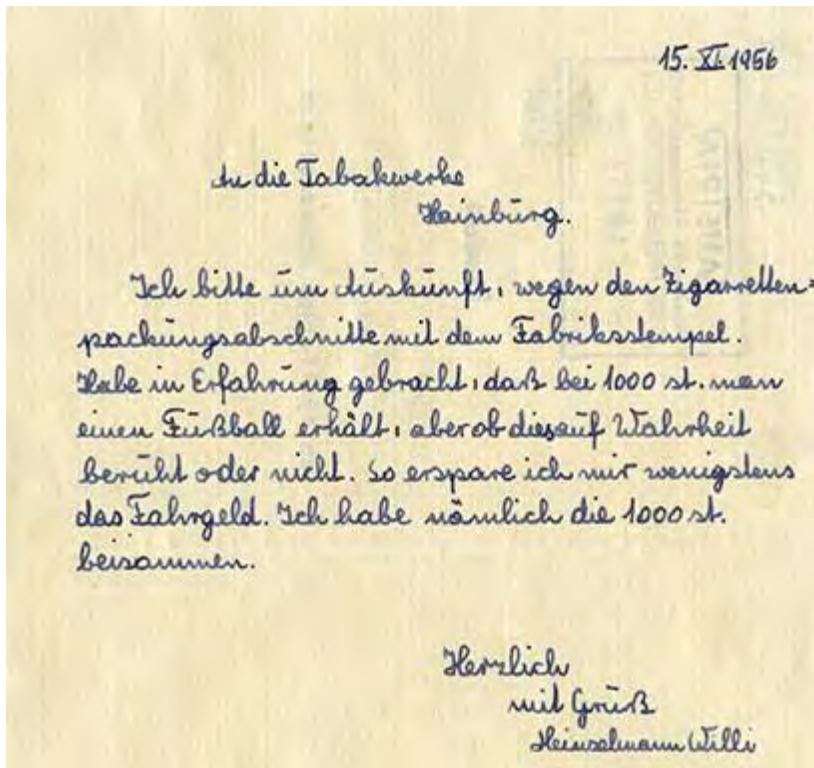 15. XI. 1956
An die Tabakwerke
Hainburg.
Ich bitte um Auskunft, wegen den Zigarretten=
packungsabschnitte mit dem Fabriksstempel.
Habe in Erfahrung gebracht, daß bei 1000 st. man
einen Fußball erhält, aber ob dies auf Wahrheit
beruht oder nicht. So erspare ich mir wenigstens
das Fahrgeld. Ich habe nämlich die 1000 st.
beisammen.
Herzlich
mit Gruß
Heinselmann Willi